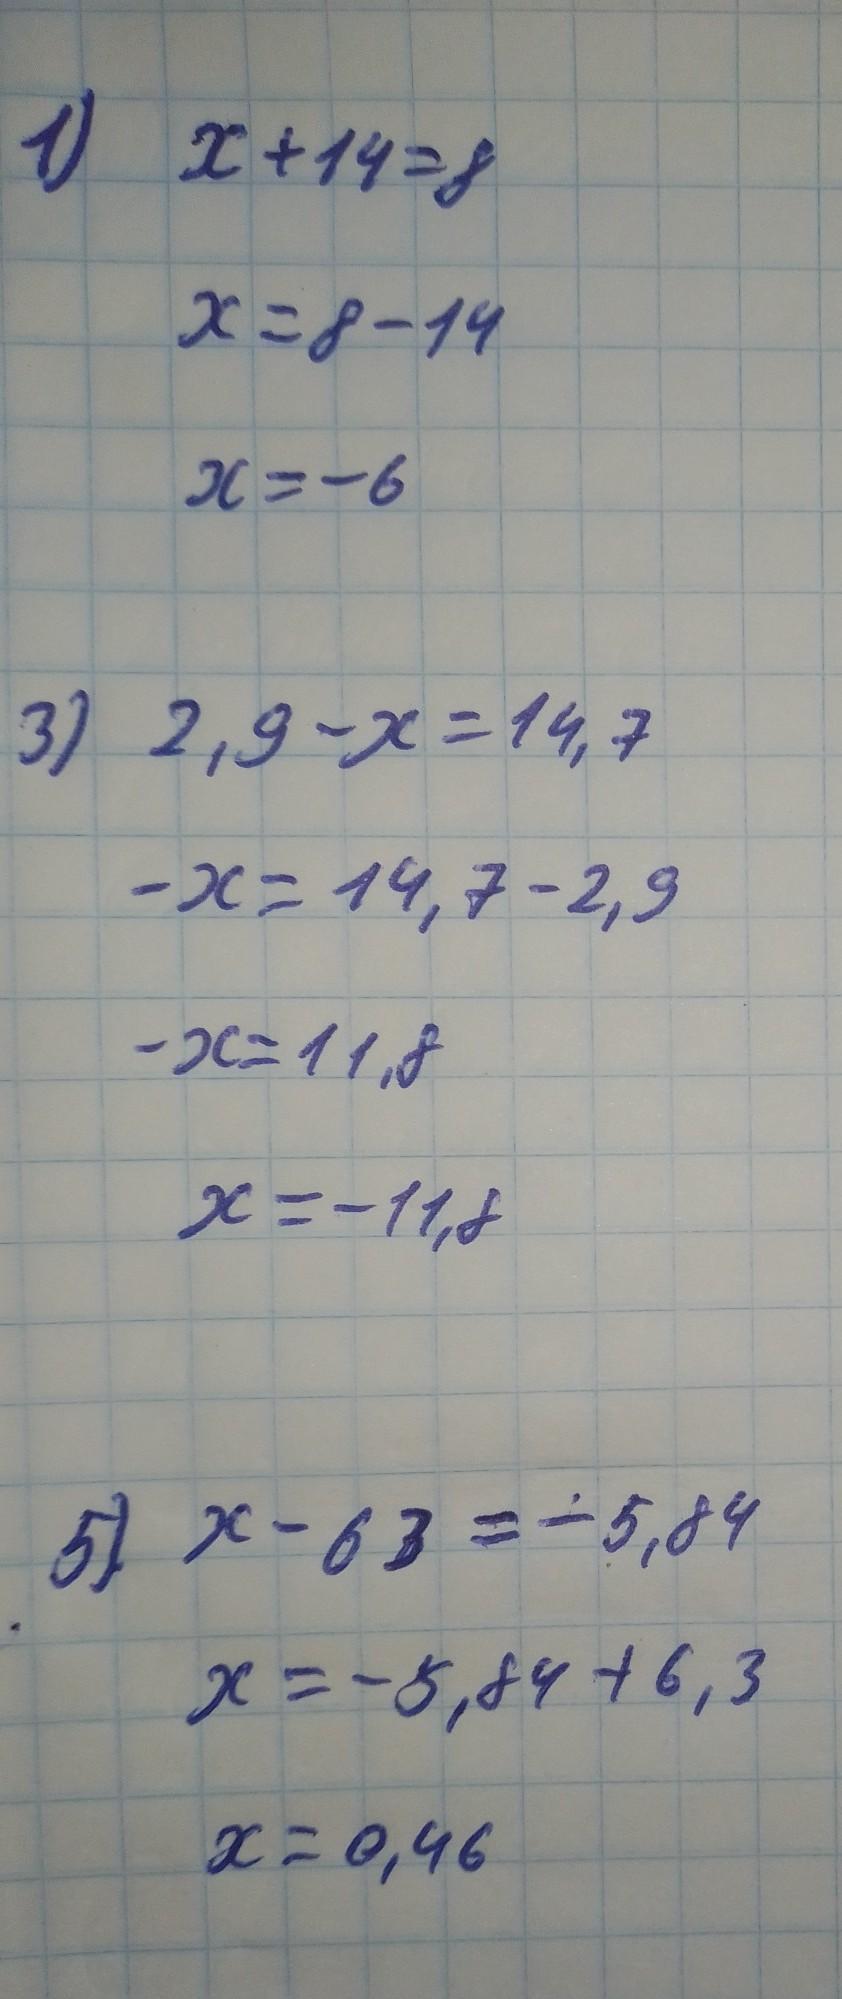 1) x + 14 = 8
x = 8 - 14
x = - 6
3) 2,9 - x = 14,7
-x = 14,7 - 2,9
-x = 11,8
x = - 11,8
5) x - 63 = - 5,84
x = - 5,84 + 6,3
x = 0,46